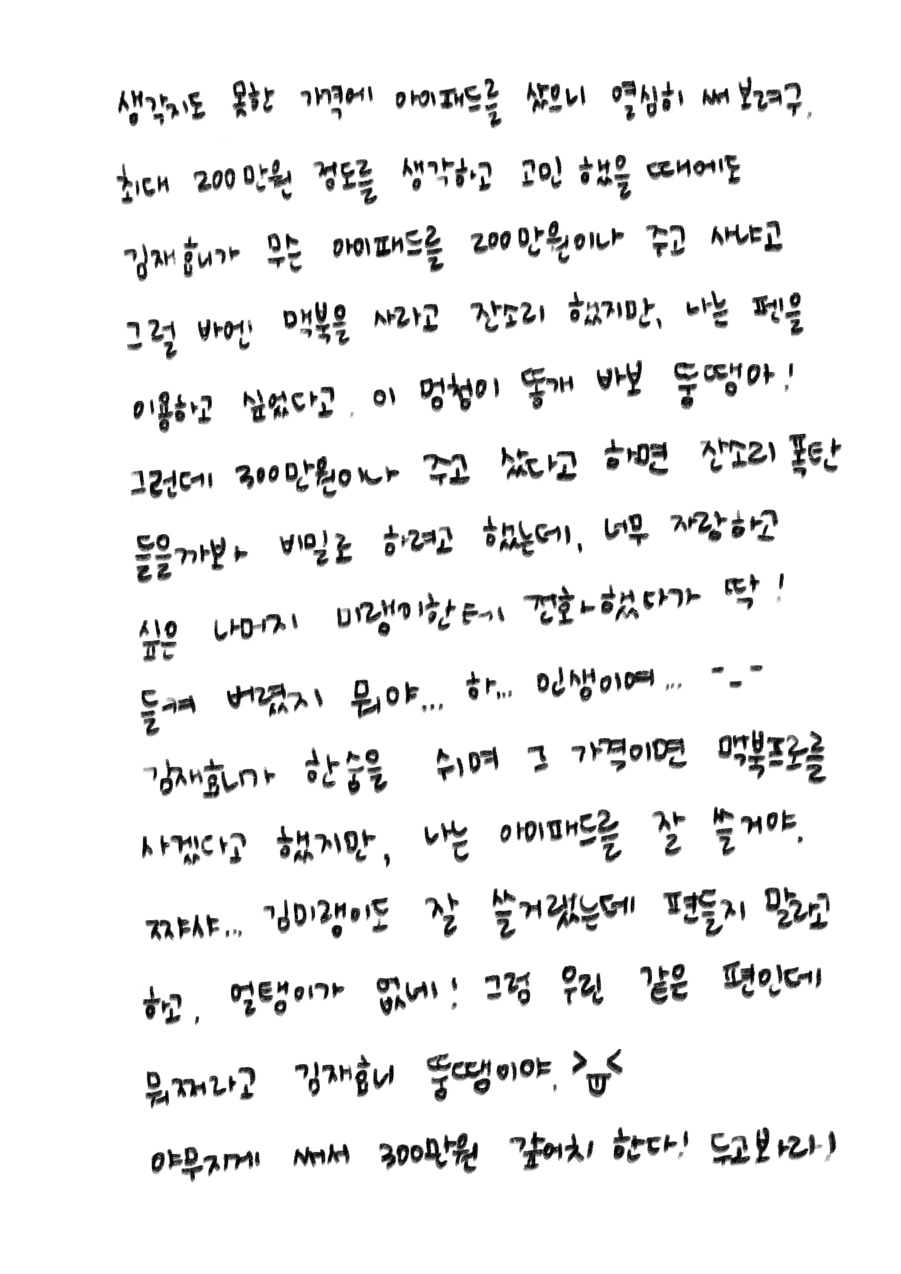 생각지도 못한 가격에 아이패드를 샀으니 열심히 써 보려구.
최대 200만원 정도를 생각하고 고민 했을 때에도
김재효니가 무슨 아이패드를 200만원이나 주고 사냐고
그럴 바엔 맥북을 사라고 잔소리 했지만, 나는 펜을
이용하고 싶었다고. 이 멍청이 똥개 바보 뚱땡아!
그런데 300만원이나 주고 샀다고 하면 잔소리 폭탄
들을까봐 비밀로 하려고 했는데, 너무 자랑하고
싶은 나머지 미랭이한테 전화했다가 딱!
들켜 버렸지 뭐야... 하... 인생이여... -_-
김재효니가 한숨을 쉬며 그 가격이면 맥북프로를
사겠다고 했지만, 나는 아이패드를 잘 쓸거야.
짜샤... 김미랭이도 잘 쓸거랬는데 편들지 말라고
하고, 얼탱이가 없네! 그럼 우린 같은 편인데
뭐쩌라고 김재효니 뚱땡이야. >ㅠ<
야무지게 써서 300만원 값어치 한다! 두고보라!